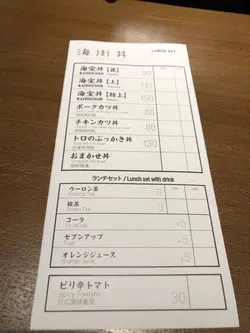 海街丼 LUNCH SET
海宝丼【並】 90
KAIHOUDON
海宝丼【上】 110
KAIHOUDON
海宝丼【特上】 150
KAIHOUDON
ポークカツ丼 80
チキンカツ丼 80
トロのぶっかき丼 130
おまかせ丼
ランチセット / Lunch set with drink
ウーロン茶 0
Oolong Tea
緑茶 0
Green Tea
コーラ +5
セブンアップ +5
オレンジジュース +5
Orange Juice
ピリ辛トマト 30
Spicy Tomato